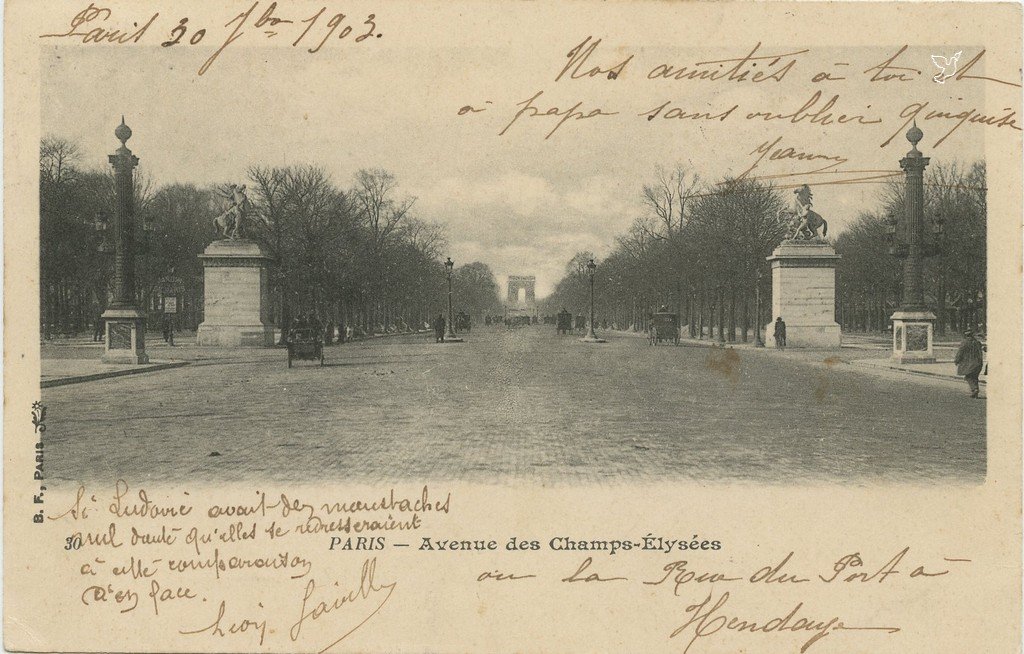 Paris 30 7bre 1903.
Nos amitiés à toi et
à papa sans oublier
Jeanne
B. F., PARIS
Si Ludovic avait des moustaches
nul doute qu'elles se redresseraient
à cette comparaison
d'en face.
30
PARIS — Avenue des Champs-Élysées
ou la Rue du Port à
Hendaye